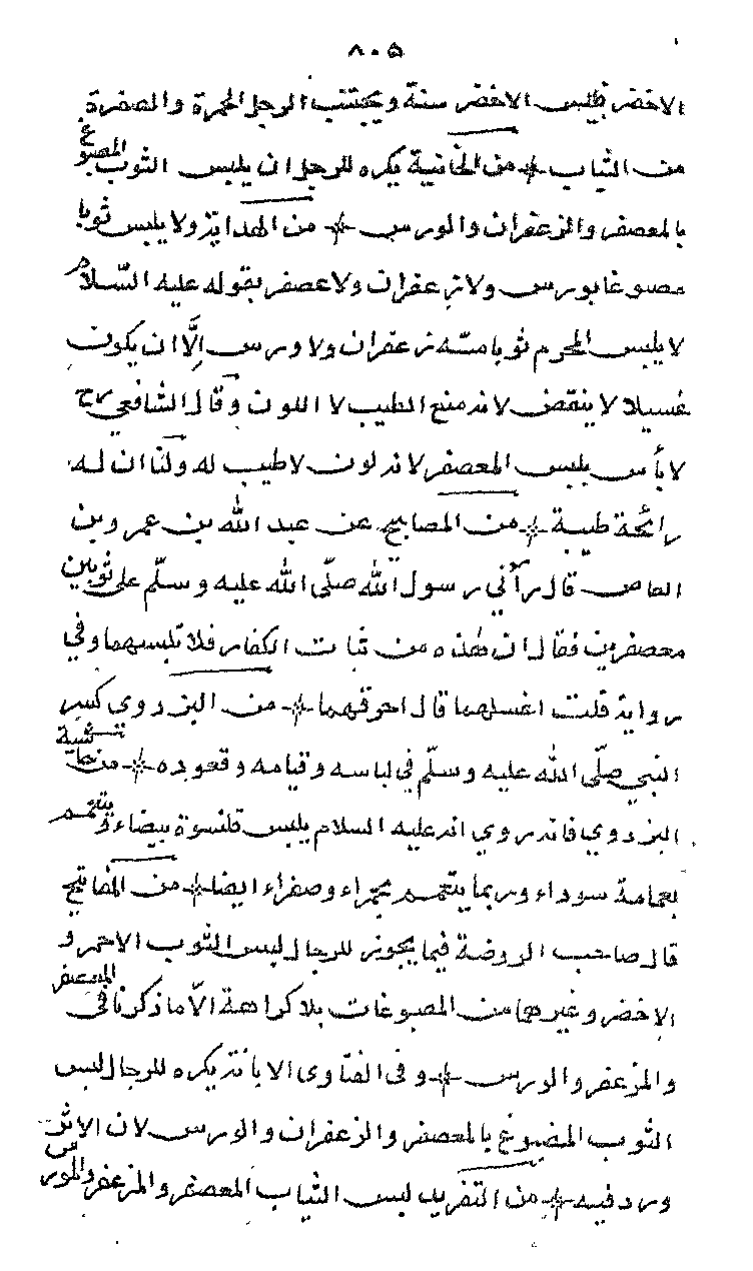 ٨٠٥
الاخضر فلبس الاخضر سنة ويجتنب الرجل الحمرة والصفرة
من الثياب من الخانية يكره للرجل ان يلبس الثوب المصبوغ
بالمعصفر والزعفران والورس من الهداية ولا يلبس ثوبا
مصبوغا بورس ولا زعفران ولا عصفر بقوله عليه السّلام
لا يلبس المحرم ثوبا مسّه زعفران ولا ورس الّا ان يكون
غسيلا لا ينفض لانه منع الطيب لا اللون وقال الشافعي رح
لا بأس بلبس المعصفر لانه لون لا طيب له ولنا ان له
رائحة طيبة من المصابيح عن عبد الله بن عمرو بن
العاص قال رآني رسول الله صلّى الله عليه وسلّم على ثوبين
معصفرين فقال ان هذه من ثياب الكفار فلا تلبسهما وفي
رواية قلت اغسلهما قال احرقهما من البزدوي كسير
النبي صلّى الله عليه وسلّم في لباسه وقيامه وقعوده من
البزدوي فانه روي انه عليه السلام يلبس قلنسوة بيضاء ويتعمم
بعمامة سوداء وربما يتعمم بحمراء وصفراء ايضا من المفاتيح
قال صاحب الروضة فيما يجوز للرجال لبس الثوب الاحمر و
الاخضر وغيرها من المصبوغات بلا كراهة الّا ما ذكرنا في المعصفر
والمزعفر والورس وفى الفتاوى الا يكره للرجال لبس
الثوب المصبوغ بالمعصفر والزعفران والورس لان الاثر
ورد فيه من التفريد لبس الثياب المعصفر والمزعفر والمورس